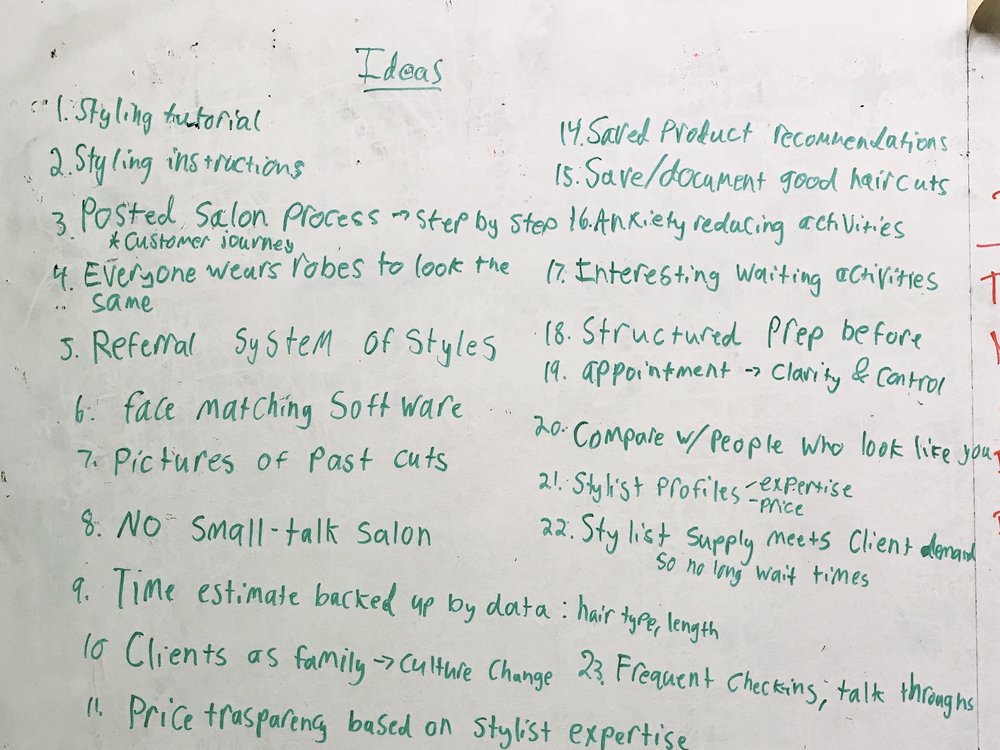 Ideas
1. Styling tutorial
2. Styling instructions
3. Posted Salon Process → Step by Step
* Customer journey
4. Everyone wears robes to look the
same
5. Referral System of Styles
6. face matching Software
7. Pictures of Past cuts
8. NO Small-talk Salon
9. Time estimate backed up by data: hair type, length
10 Clients as family → Culture Change
11. Price trasparency based on stylist expertise
14. Saved Product recommendations
15. Save/document good haircuts
16. Anxiety reducing activities
17. Interesting waiting activities
18. Structured Prep before
19. appointment → Clarity & Control
20. Compare w/ People who look like you
21. Stylist Profiles - expertise
- price
22. Stylist Supply meets Client demand
So no long wait times
23. Frequent Checking, talk throughs